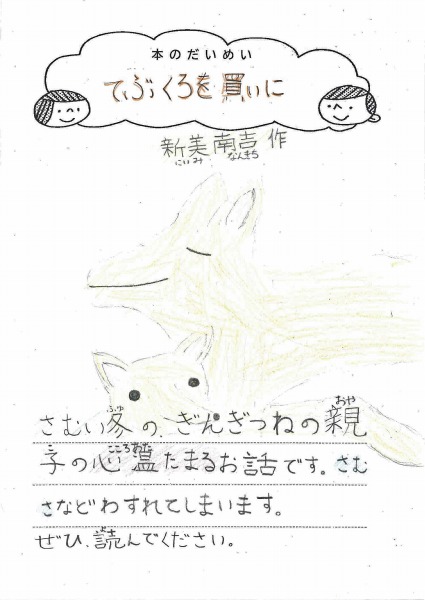 本のだいめい
てぶくろを買いに
新美南吉 作
にいみ なんきち
ふゆ おや
さむい冬の、ぎんぎつねの親
こ こころあたた
子の心温たまるお話です。さむ
さなどわすれてしまいます。
よ
ぜひ、読んでください。